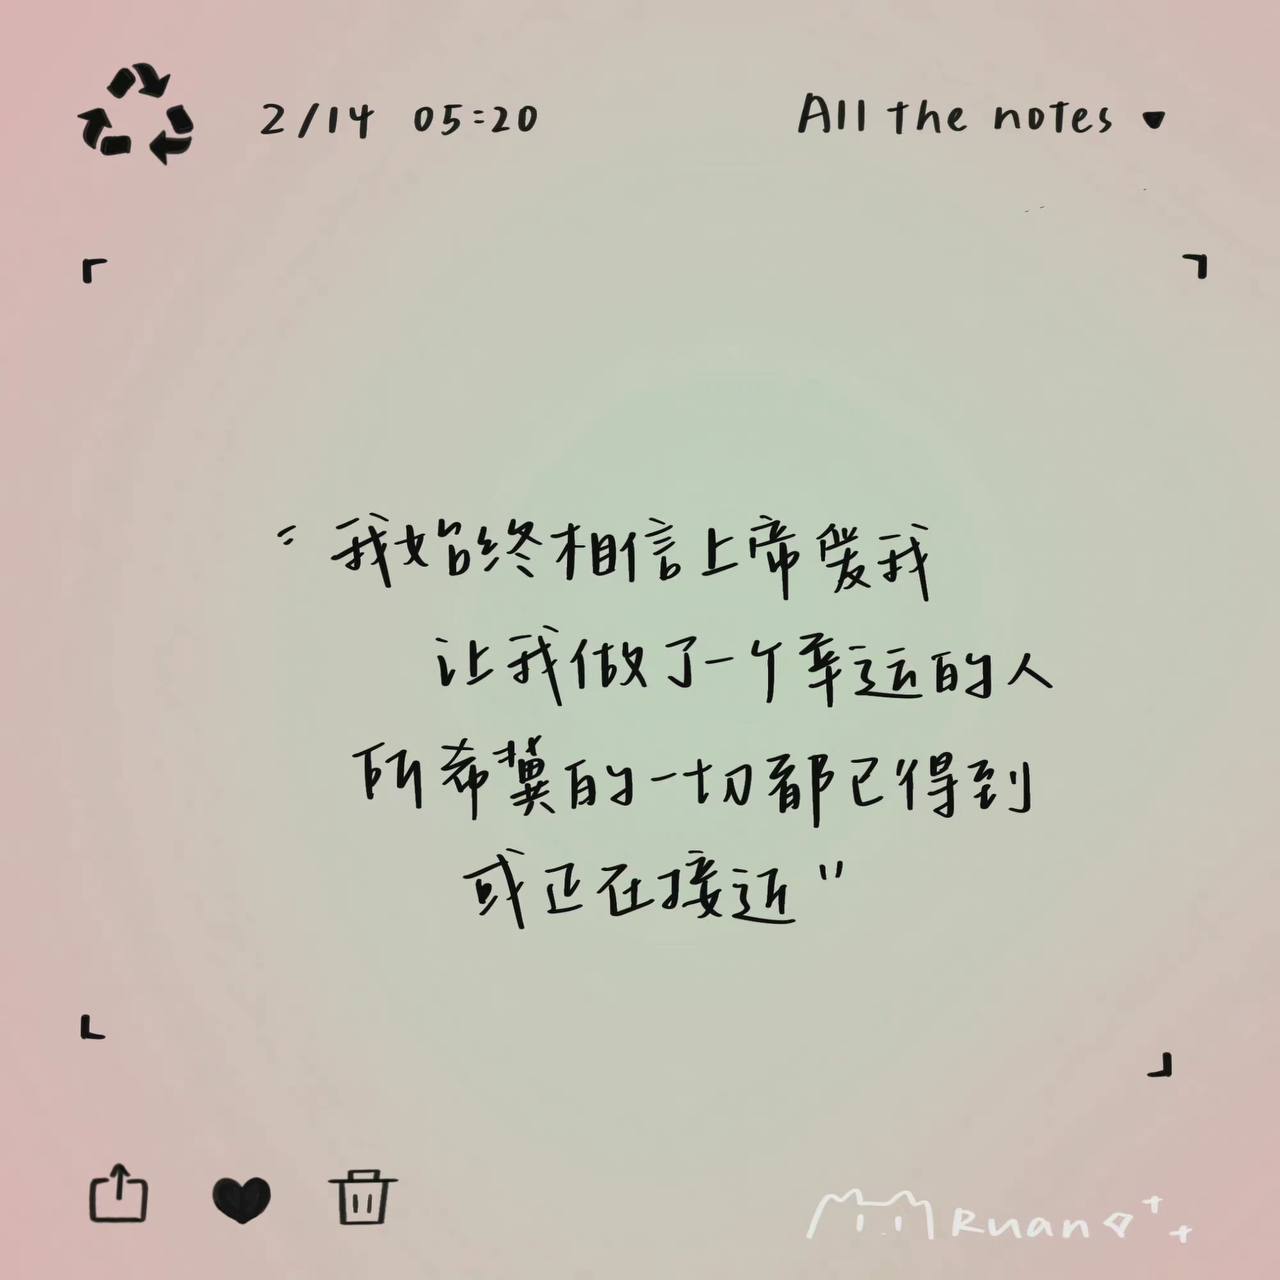 2/14 05:20
All the notes
"我始终相信上帝爱我
让我做了一个幸运的人
所希冀的一切都已得到
或正在接近"
Ruan